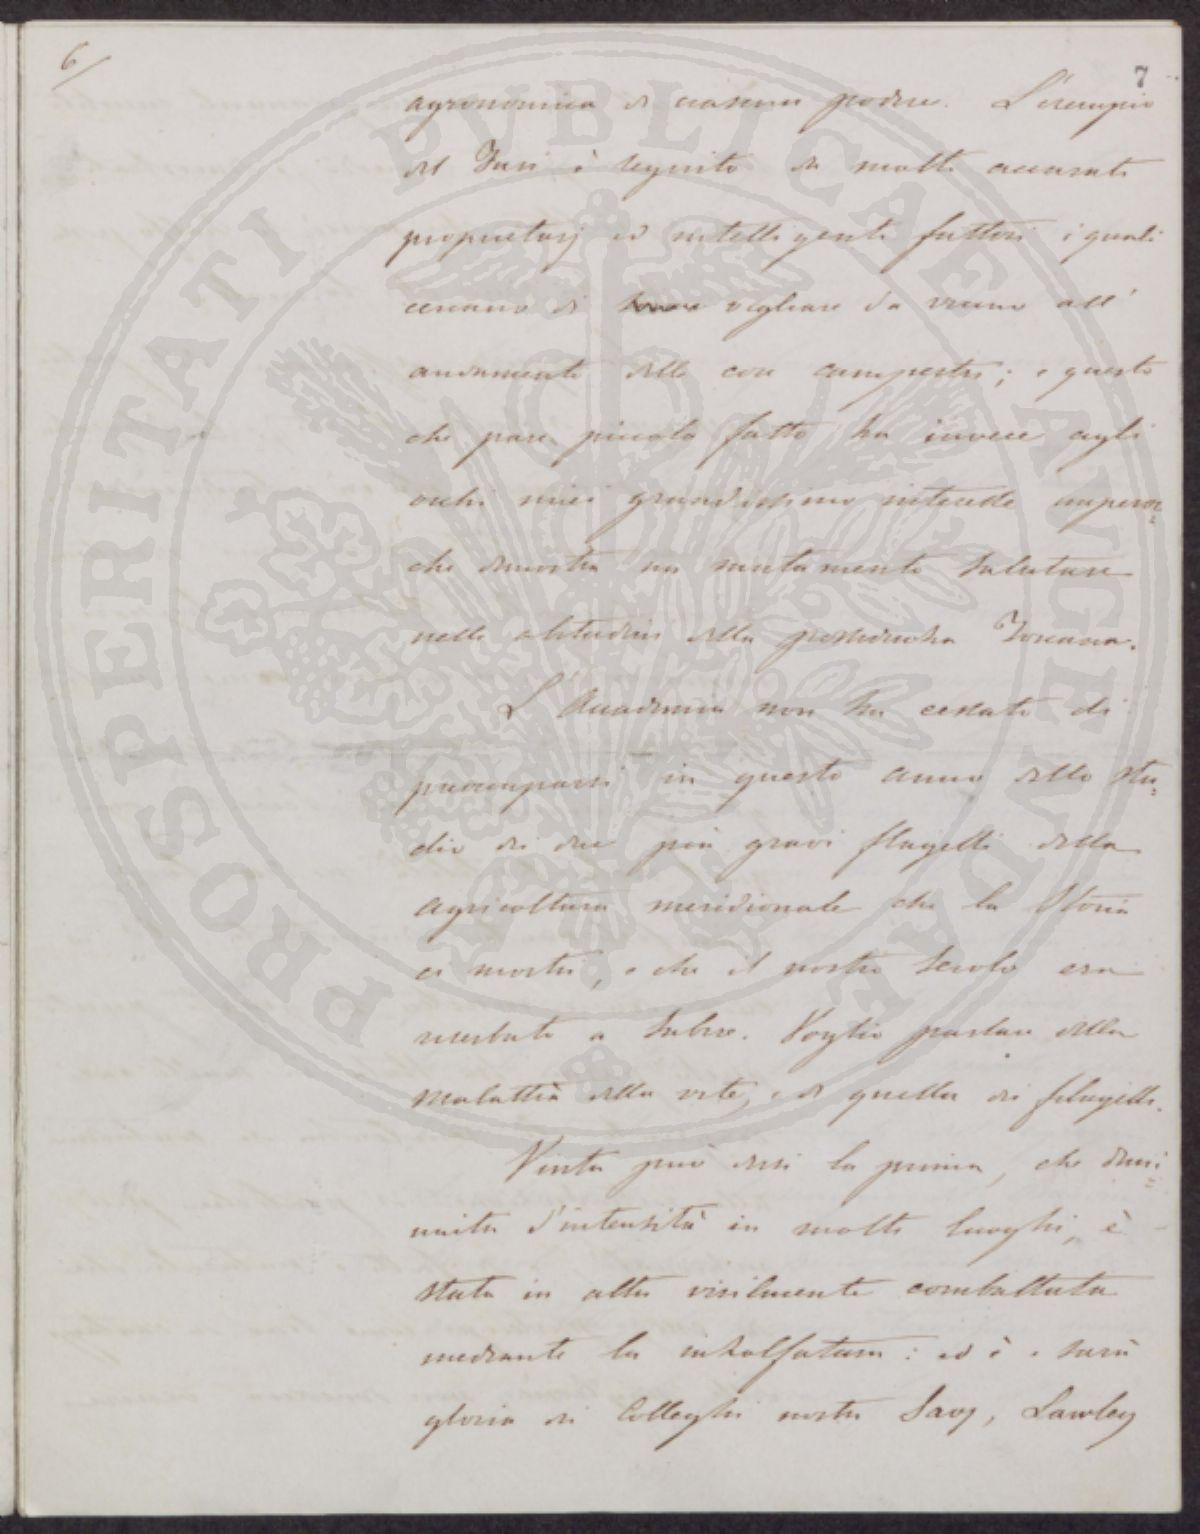 6/
7
agronomica di ciascun podere. L'esempio
del Tusi è seguito da molti accurati
proprietarj ed intelligenti fattori i quali
cercano di vegliare da vicino all'
andamento delle cose campestri; e questo
che pare piccolo fatto ha invece agli
occhi miei grandissimo interesse imperoc=
che dimostra un mutamento salutare
nelle abitudini della possidenza Toscana.
L'Accademia non ha cessato di
preoccuparsi in questo anno dello stu=
dio dei due più gravi flagelli della
agricoltura meridionale che la Storia
ci mostri, e che il nostro secolo era
riserbato a subire. Voglio parlare della
malattia della vite, e di quella dei filugelli.
Vinta può dirsi la prima, che dimi=
nuita d'intensità in molti luoghi, è
stata in altri virilmente combattuta
mediante la insolfatura: ed è e sarà
gloria dei Colleghi nostri Savj, Lawley
PROSPERITATI PUBLICAE AUGENDAE